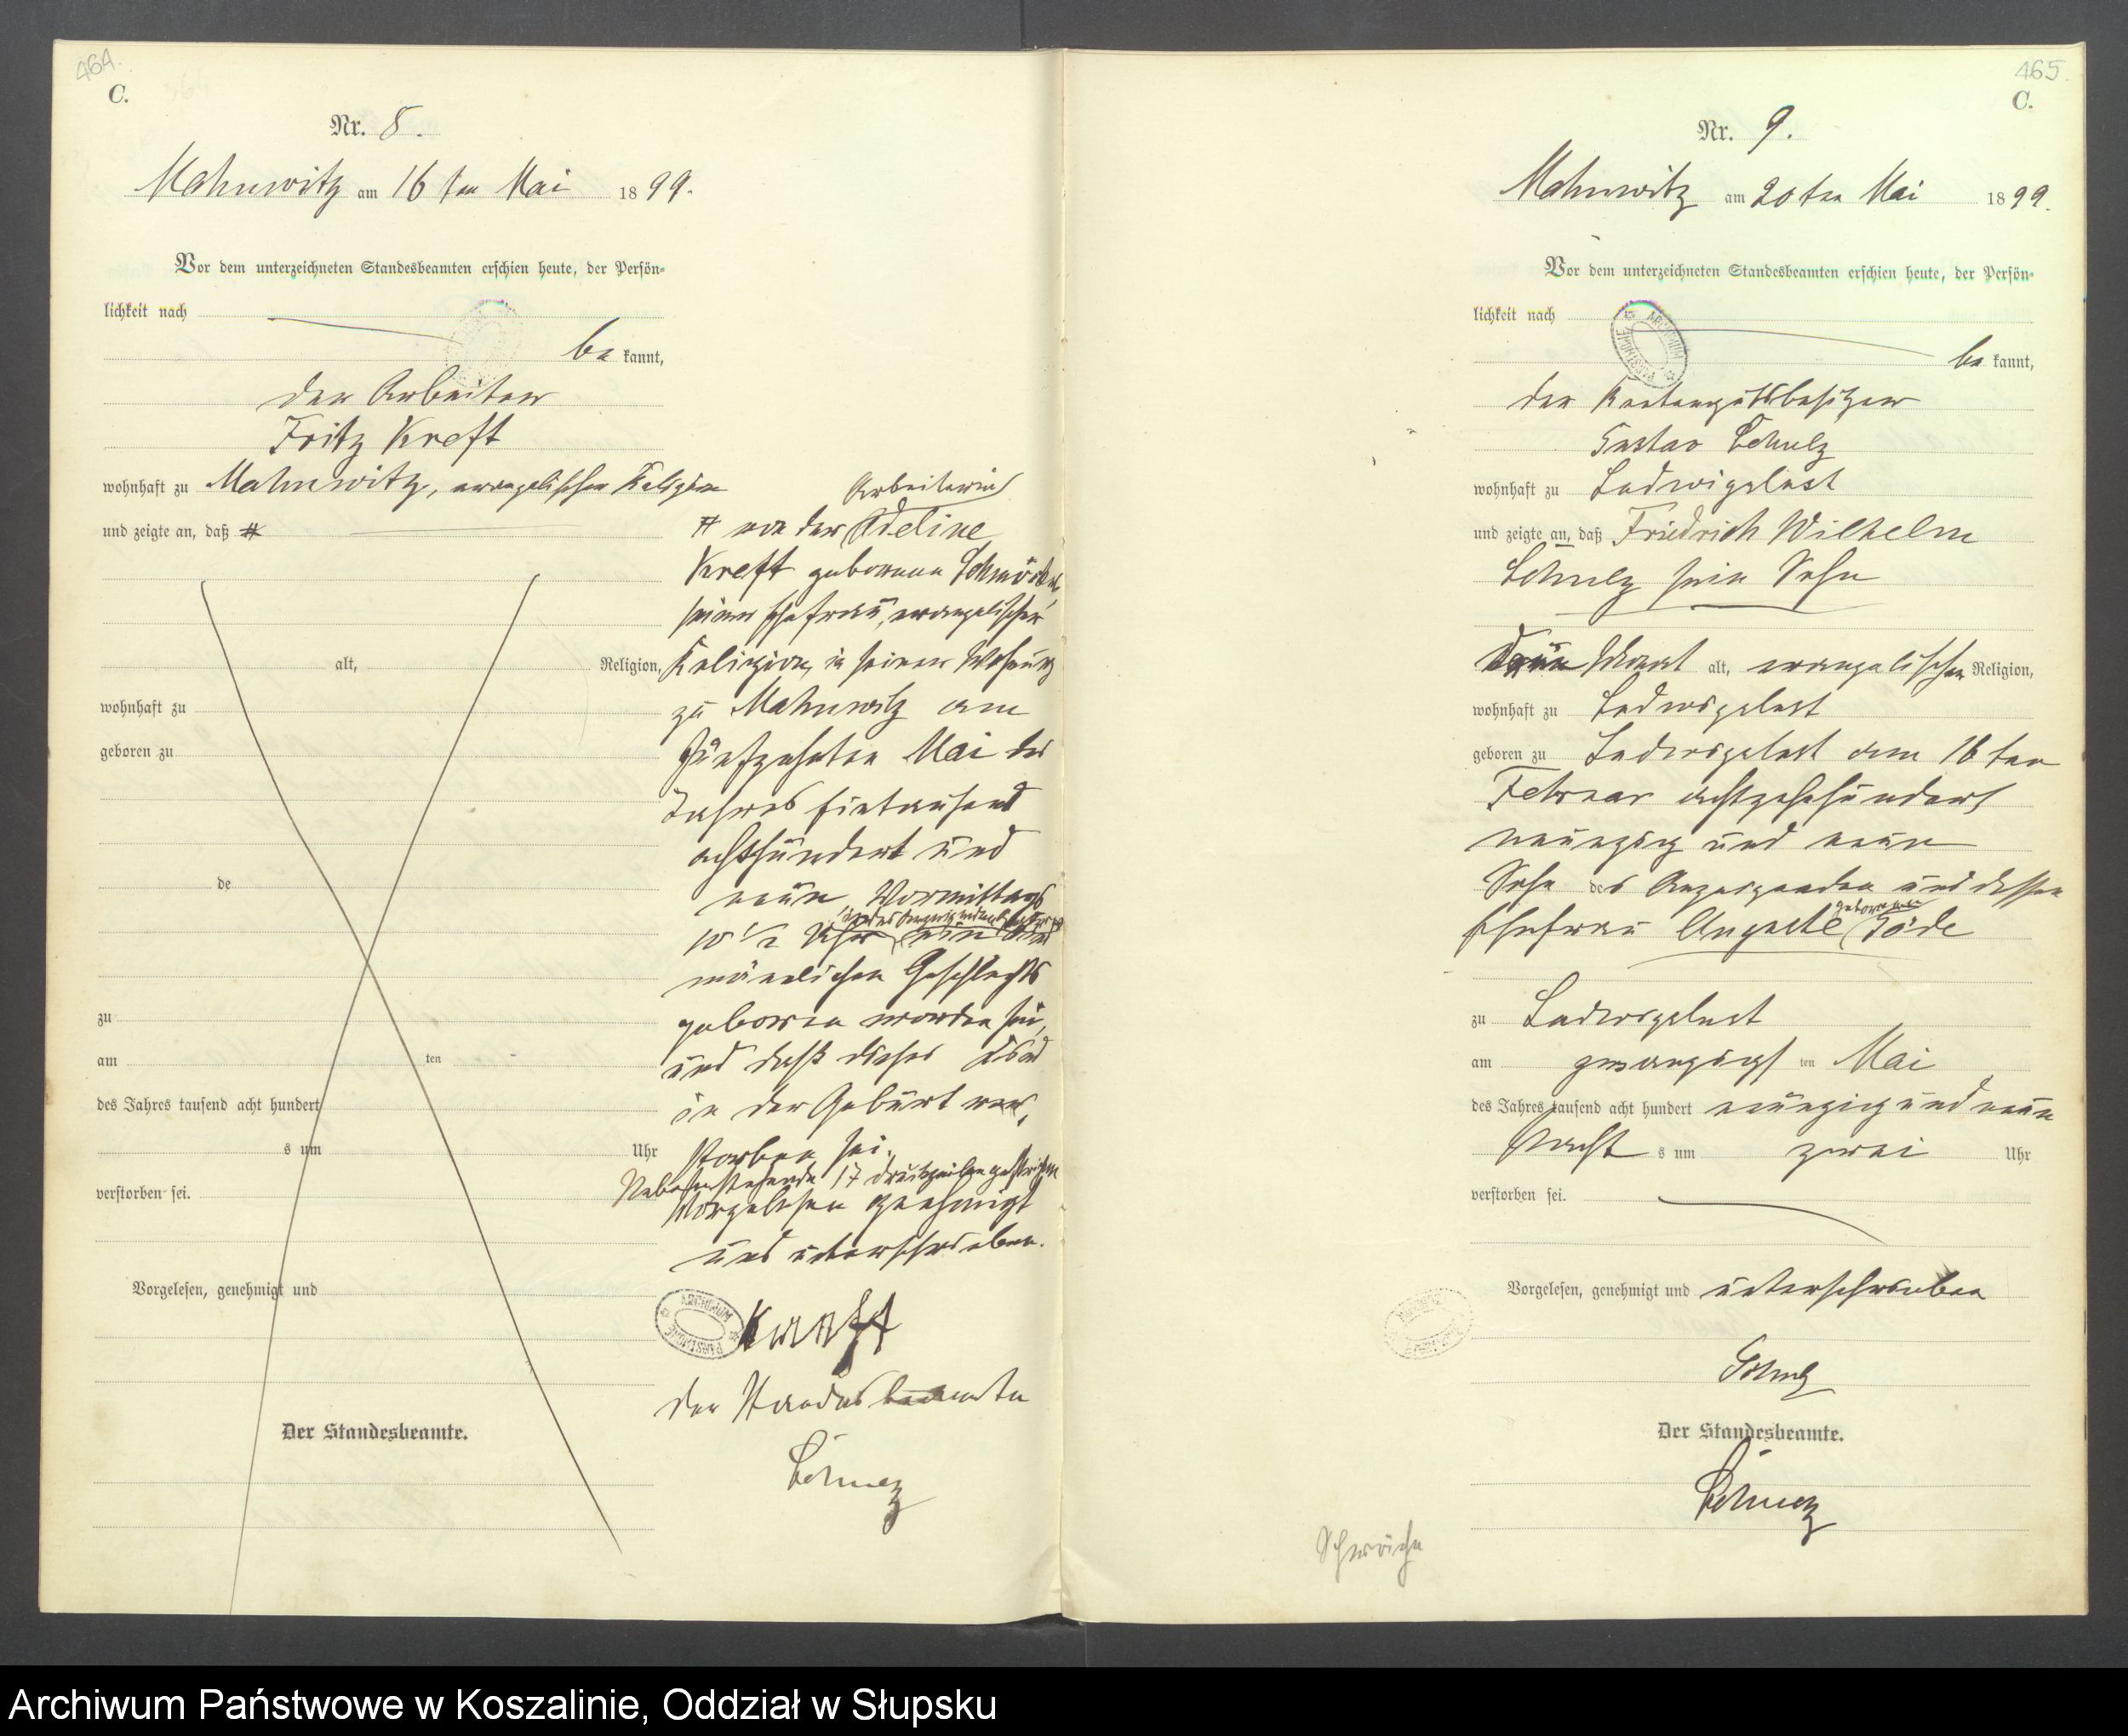 464.
C.
Nr. 8.
Mahnwitz am 16 ten Mai 1899.
Vor dem unterzeichneten Standesbeamten erschien heute, der Persön-
lichkeit nach
be kannt,
der Arbeiter
Fritz Kreft
wohnhaft zu Mahnwitz, evangelischer Religion
und zeigte an, daß #
alt, Religion,
wohnhaft zu
geboren zu
de
zu
am ten
des Jahres tausend acht hundert
s um Uhr
verstorben sei.
Vorgelesen, genehmigt und
Der Standesbeamte.
Arbeiterin
# von der Adeline
Kreft geborene
seiner Ehefrau, evangelischer
Religion, in seiner Wohnung
zu Mahnwitz am
fünfzehnten Mai des
Jahres Eintausend
achthundert und
neun Vormittags
10 1/2 Uhr ein Kind
männlichen Geschlechts
geboren worden sei,
und daß dieses Kind
in der Geburt ver,
storben sei.
Nebenstehende 17 Druckzeilen gestrichen
Vorgelesen genehmigt
und unterschrieben.
Kreft
Der Standesbeamte
ARCHIWUM PAŃSTWOWE
465.
C.
Nr. 9.
Mahnwitz am 20 ten Mai 1899.
Vor dem unterzeichneten Standesbeamten erschien heute, der Persön-
lichkeit nach
ARCHIWUM PAŃSTWOWE
be kannt,
der Rentengutsbesitzer
Gustav Schulz
wohnhaft zu Ludwigslust
und zeigte an, daß Friedrich Wilhelm
Schulz sein Sohn
Monat alt, evangelischer Religion,
wohnhaft zu Ludwigslust
geboren zu Ludwigslust am 16 ten
Februar achtzehnhundert
neunzig und neun
Sohn des Anzeigenden und dessen
Ehefrau Auguste geborenen Jöde
zu Ludwigslust
am zwanzigst ten Mai
des Jahres tausend acht hundert neunzig und neun
Nacht s um zwei Uhr
verstorben sei.
Vorgelesen, genehmigt und unterschrieben
Schulz
Der Standesbeamte.
Archiwum Państwowe w Koszalinie, Oddział w Słupsku